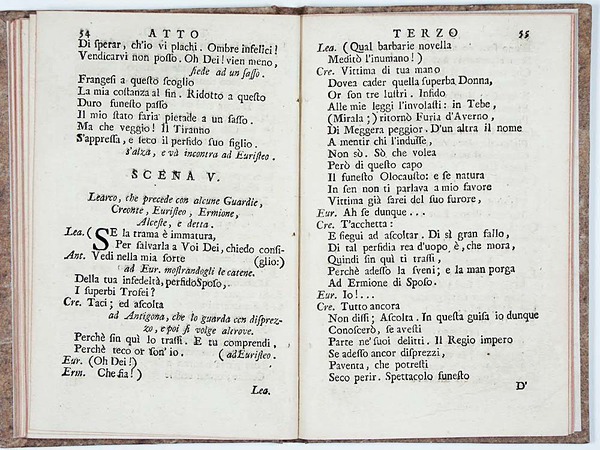 54 ATTO
Di sperar, ch'io vi plachi. Ombre infelici!
Vendicarvi non posso. Oh Dei! vien meno,
siede ad un sasso.
Frangesi a questo scoglio
La mia costanza al fin. Ridotto a questo
Duro funesto passo
Il mio stato faria pietade a un sasso.
Ma che veggio! Il Tiranno
S'appressa, e seco il perfido suo figlio.
s'alza, e và incontra ad Euristeo.
SCENA V.
Learco, che precede con alcune Guardie,
Creonte, Euristeo, Ermione,
Alceste, e detta.
Lea. ( SE la trama è immatura,
Per salvarla a Voi Dei, chiedo consi-
Ant. Vedi nella mia sorte (glio:)
ad Eur. mostrandogli le catene.
Della tua infedeltà, perfido Sposo,
I superbi Trofei?
Cre. Taci; ed ascolta
ad Antigona, che lo guarda con disprez-
zo, e poi si volge altrove.
Perchè sin quì lo trassi. E tu comprendi,
Perchè teco or son' io. (ad Euristeo.
Eur. (Oh Dei!)
Erm. Che fia!)
Lea.
TERZO 55
Lea. (Qual barbarie novella
Meditò l'inumano!)
Cre. Vittima di tua mano
Dovea cader quella superba Donna,
Or son tre lustri. Infido
Alle mie leggi l'involasti: in Tebe,
(Mirala;) ritornò Furia d'Averno,
Di Meggera peggior. D'un altra il nome
A mentir chi l'indusse,
Non sò. Sò che volea
Però di questo capo
Il funesto Olocausto: e se natura
In sen non ti parlava a mio favore
Vittima già sarei del suo furore,
Eur. Ah se dunque...
Cre. T'accheta:
E siegui ad ascoltar. Di sì gran fallo,
Di tal perfidia rea d'uopo è, che mora,
Quindi sin quì ti trassi,
Perchè adesso la sveni; e la man porga
Ad Ermione di Sposo.
Eur. Io!...
Cre. Tutto ancora
Non dissi; Ascolta. In questa guisa io dunque
Conoscerò, se avesti
Parte ne' suoi delitti. Il Regio impero
Se adesso ancor disprezzi,
Paventa, che potresti
Seco perir. Spettacolo funesto
D'